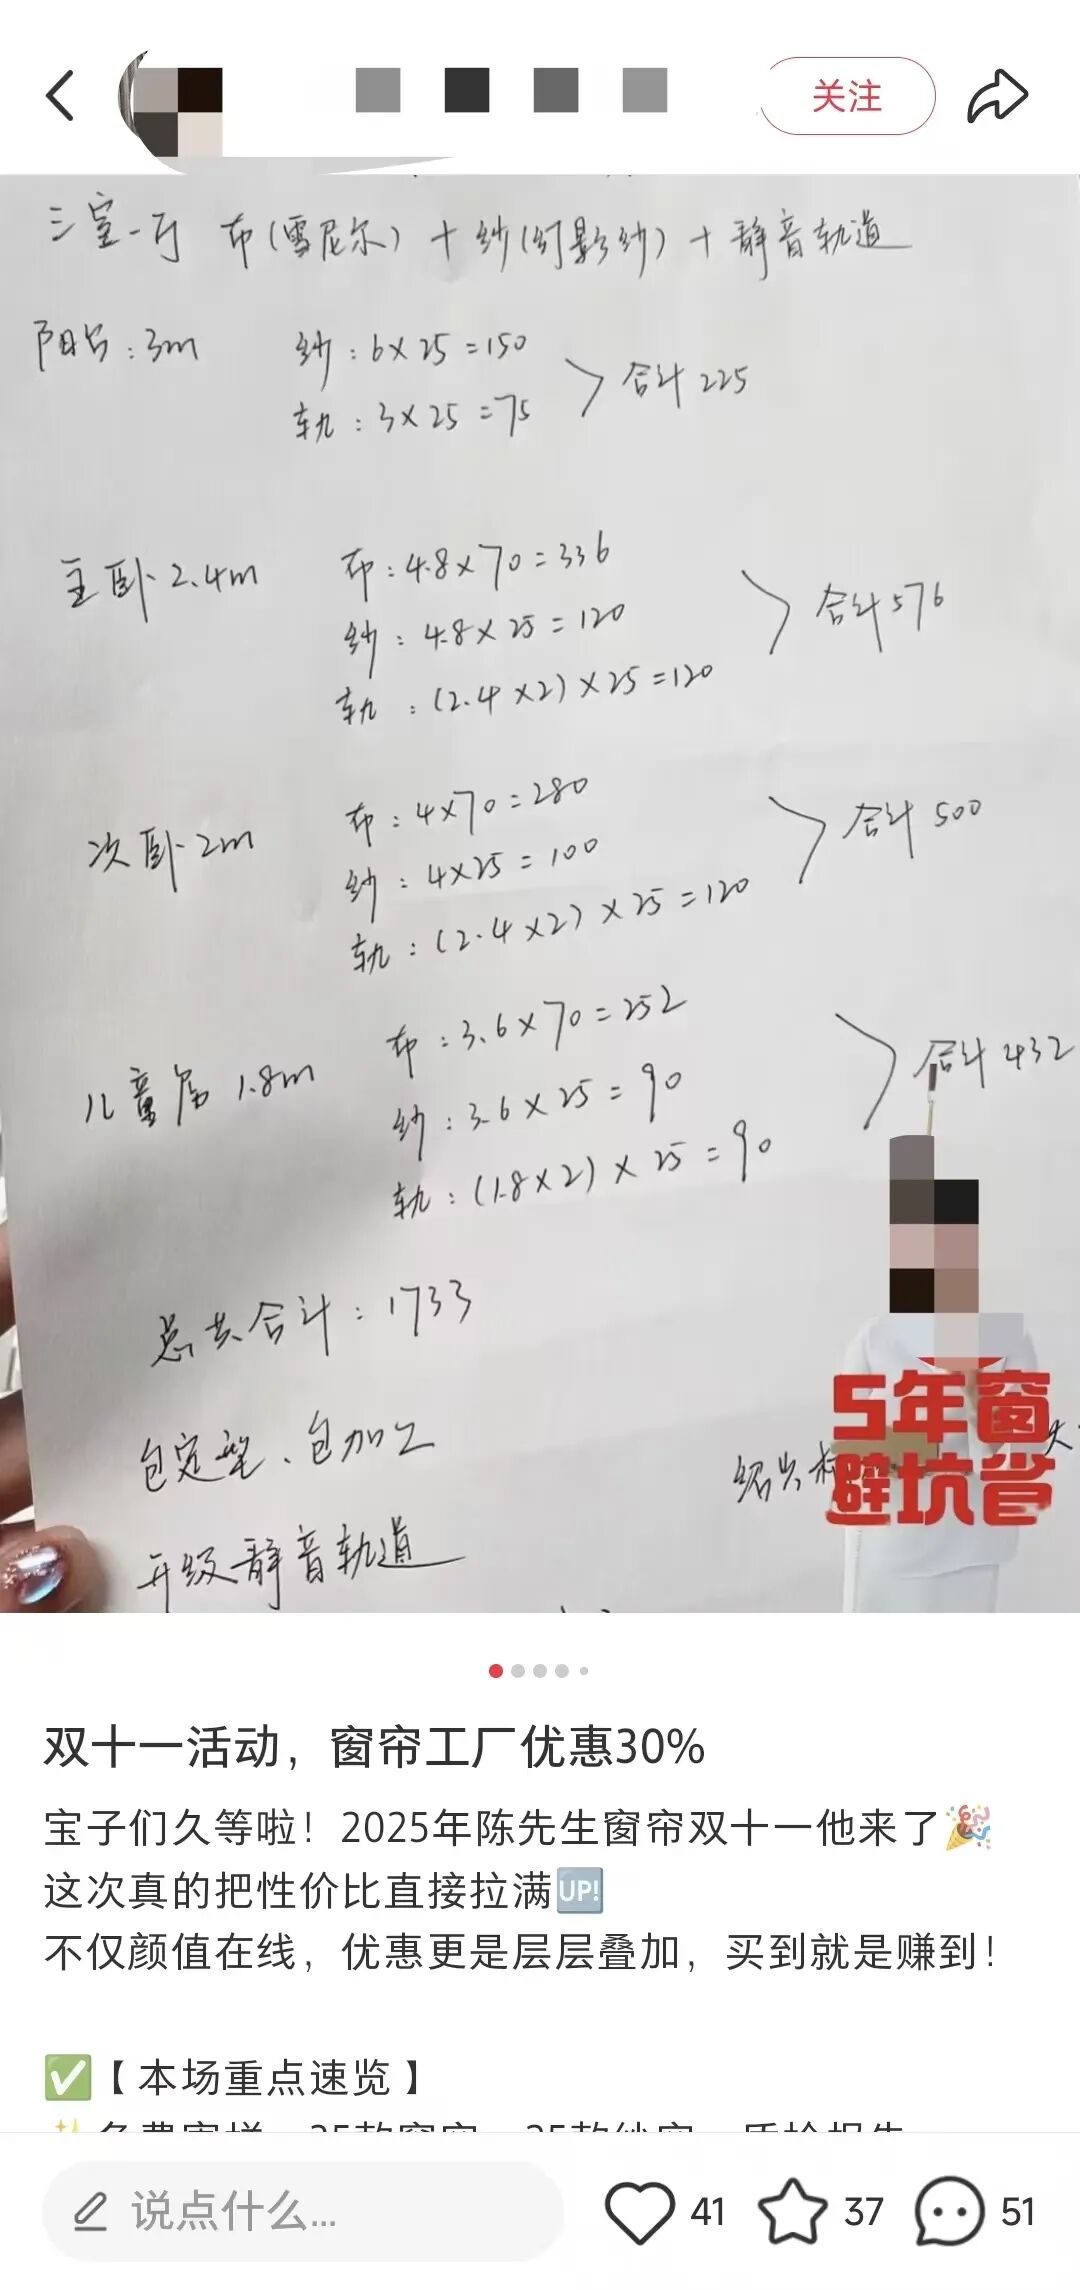 关注
三室一厅 布(雪尼尔)+纱(幻影纱)+静音轨道
阳台:3m
纱:6×25=150
轨:3×25=75
合计225
主卧2.4m
布:4.8×70=336
纱:4.8×25=120
轨:(2.4×2)×25=120
合计576
次卧2m
布:4×70=280
纱:4×25=100
轨:(2.4×2)×25=120
合计500
儿童房1.8m
布:3.6×70=252
纱:3.6×25=90
轨:(1.8×2)×25=90
合计432
总共合计:1733
包定型、包加工
绍兴柯
升级静音轨道
5年窗
避坑省
双十一活动，窗帘工厂优惠30%
宝子们久等啦！2025年陈先生窗帘双十一他来了🎉
这次真的把性价比直接拉满🆙
不仅颜值在线，优惠更是层层叠加，买到就是赚到！
✅【本场重点速览】
说点什么...
41
37
51